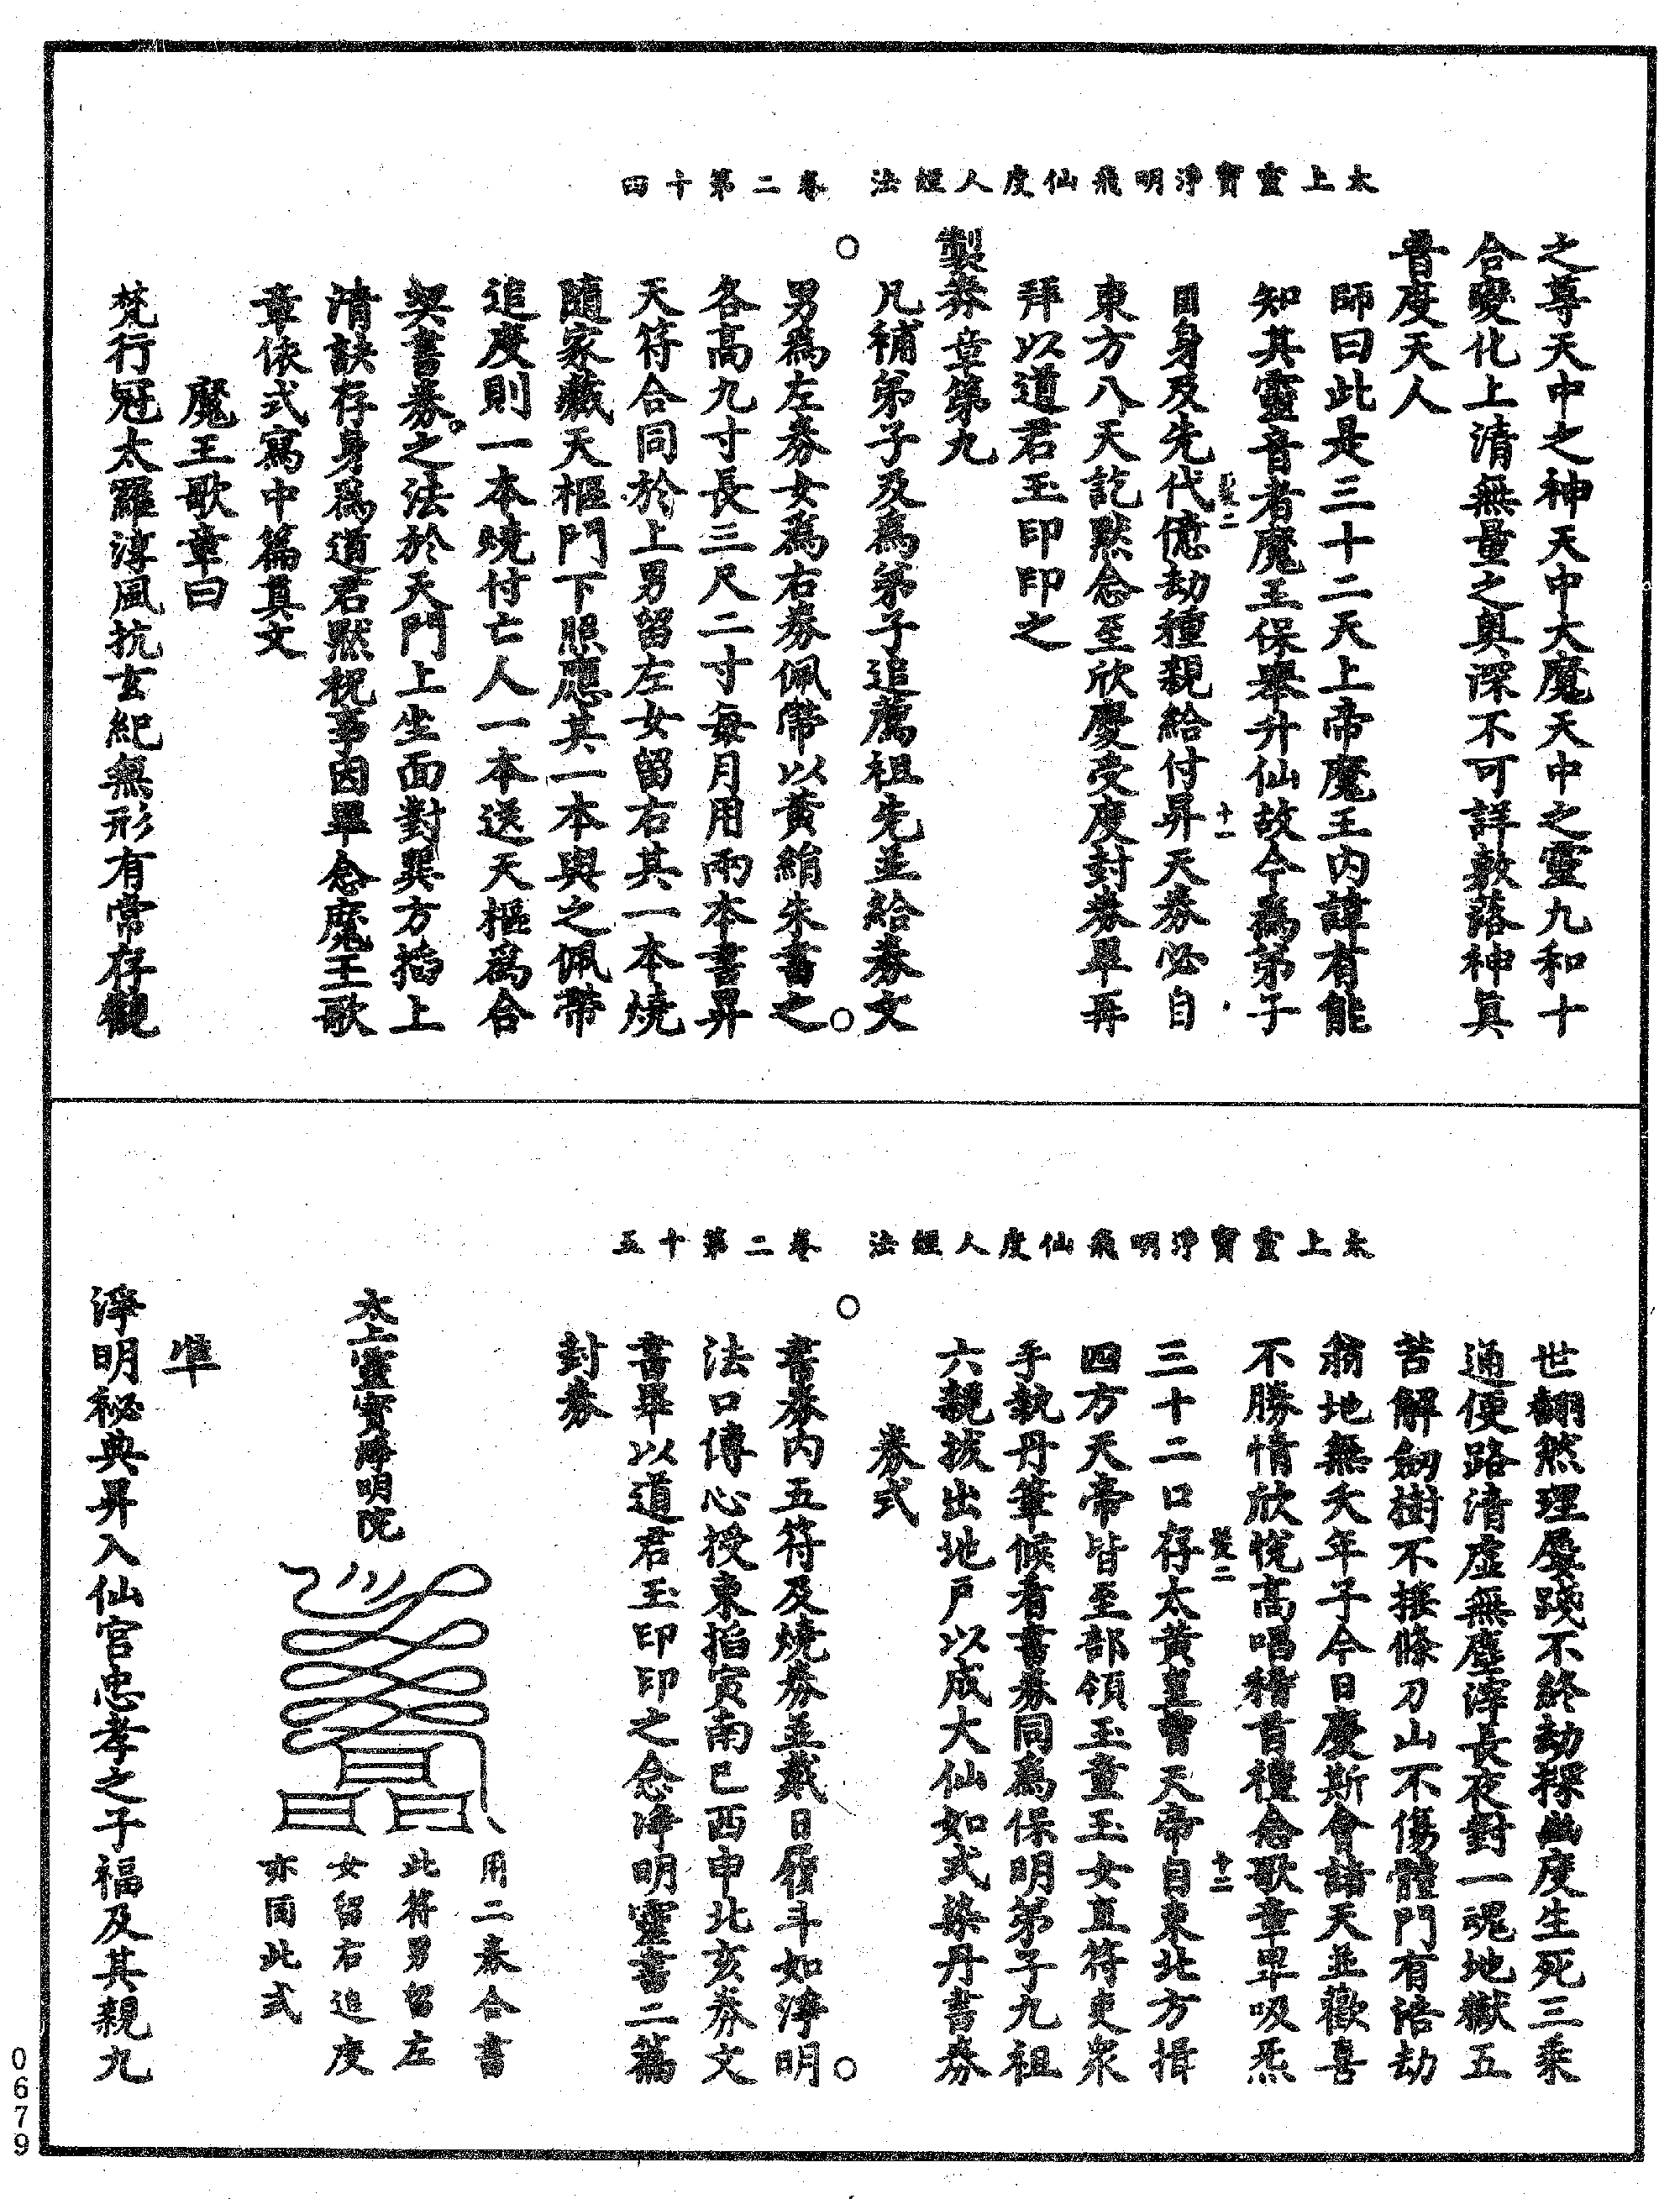 太上靈寶淨明飛仙度人經法　卷二第十四
之尊天中之神天中大魔天中之靈九和十
合變化上清無量之奧深不可詳敷落神真
普度天人
師曰此是三十二天上帝魔王內諱有能
知其靈音者魔王保舉升仙故今為弟子
十一
目身及先代億劫種親給付昇天券必自
東方八天訖默念至欣慶受度封券畢再
拜以道君玉印印之
製券章第九
凡補弟子及為弟子追薦祖先並給券文
男為左券女為右券佩帶以黃絹朱書之
各高九寸長三尺二寸每月用兩本書昇
天符合同於上男留左女留右其一本燒
隨家藏天樞門下照應其一本與之佩帶
追度則一本燒付亡人一本送天樞為合
契書券之法於天門上坐面對巽方掐上
清訣存身為道君默祝事因畢念魔王歌
章依式寫中篇真文
魔王歌章曰
梵行冠太羅淳風抗玄紀無形有常存觀
太上靈寶淨明飛仙度人經法　卷二第十五
世翻然理屢踐不終劫探幽度生死三乘
通便路清虛無塵滓長夜對一魂地獄五
苦解劒樹不接條刀山不傷體門有浩劫
翁地無夭年子今日慶斯會諸天並歡喜
不勝情欣悅高唱稽首禮念歌章畢吸炁
十二
三十二口存太黃皇曾天帝自東北方揖
四方天帝皆至部領玉童玉女直符吏眾
手執丹筆候看書券同為保明弟子九祖
六親拔出地戶以成大仙如式染丹書券
券式
書券內五符及燒券並戴日履斗如淨明
法口傳心授東掐寅南巳西申北亥券文
書畢以道君玉印印之念淨明靈書二篇
封券
太上靈寶淨明院
用二券合書
此符男留左
女留右追度
亦同此式
準
淨明祕典昇入仙官忠孝之子福及其親九
0679